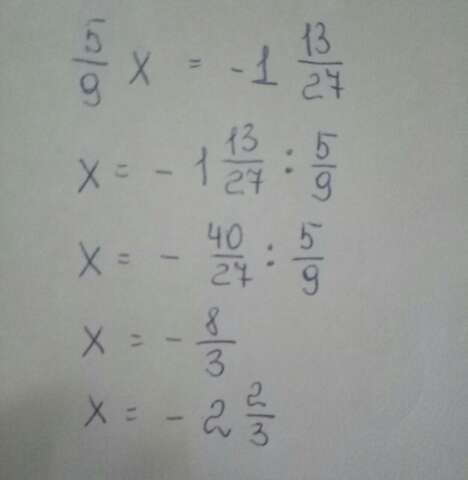 5/9 x = -1 13/27
x = -1 13/27 : 5/9
x = - 40/27 : 5/9
x = - 8/3
x = - 2 2/3